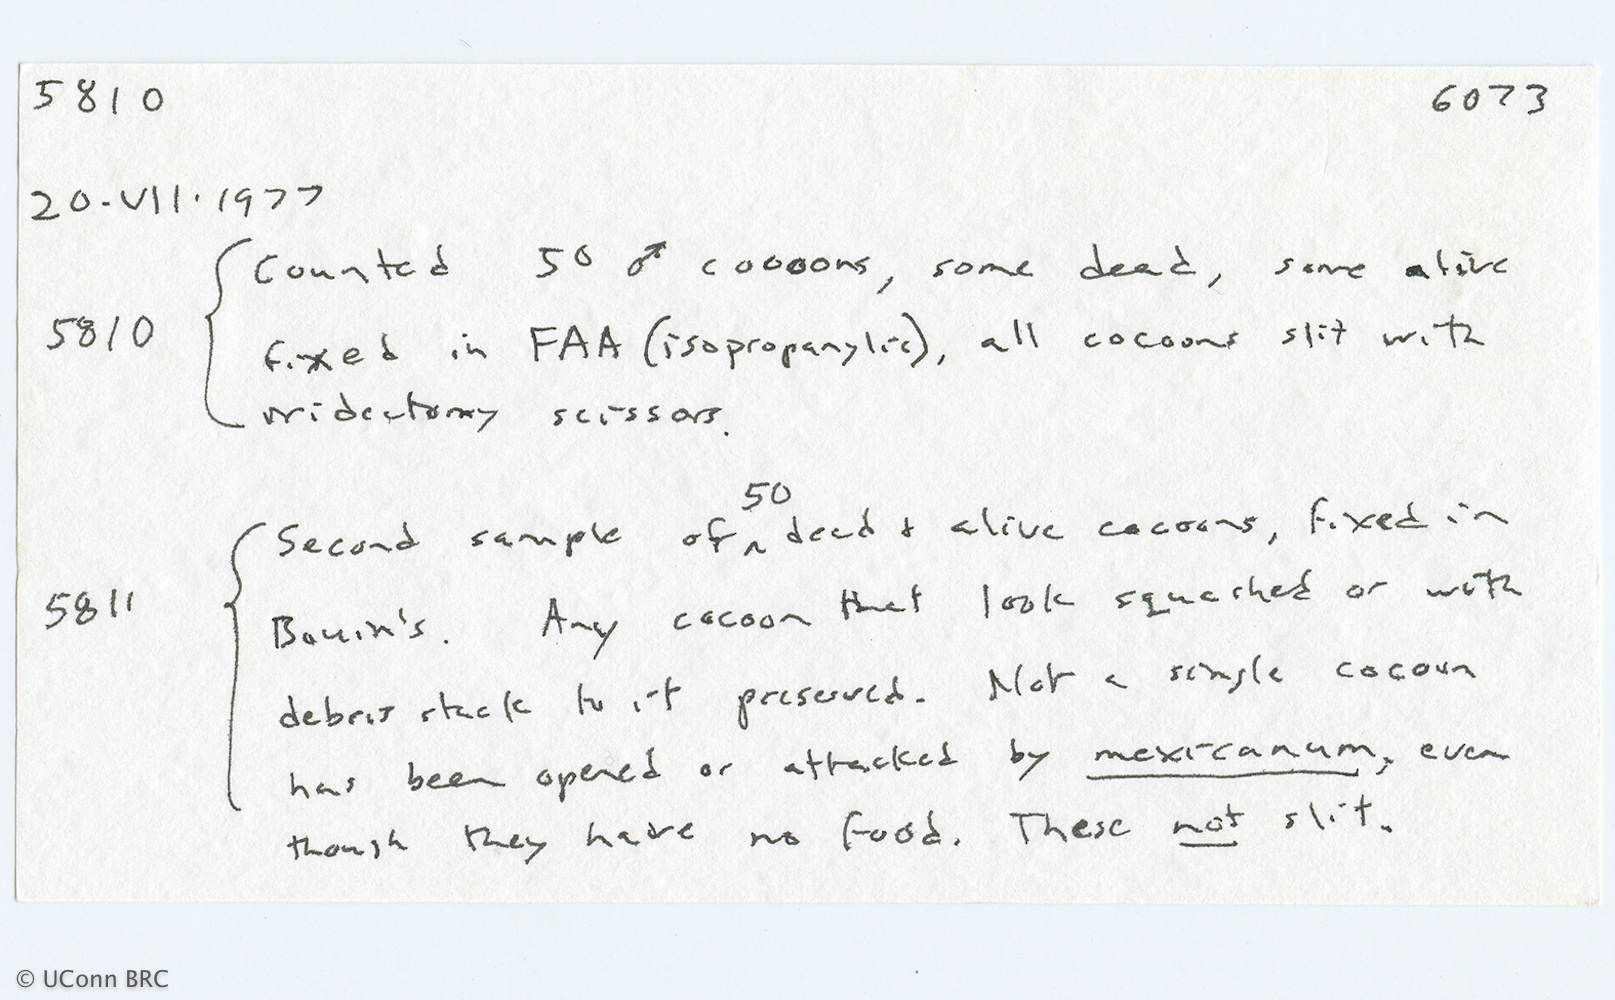 5810 6073
20-VII.1977
Counted 50 ♂ cocoons, some dead, some alive
5810 fixed in FAA (isopropanylic), all cocoons slit with
iridectomy scissors.
50
Second sample of ^ dead + alive cocoons, fixed in
5811 Bouin's. Any cocoon that look squashed or with
debris stuck to it preserved. Not a single cocoon
has been opened or attacked by mexicanum, even
though they have no food. These not slit.
© UConn BRC